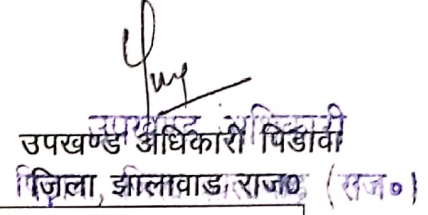 उपखण्ड अधिकारी
उपखण्ड अधिकारी पिडावा
जिला, झालावाड राज0 (राज०)